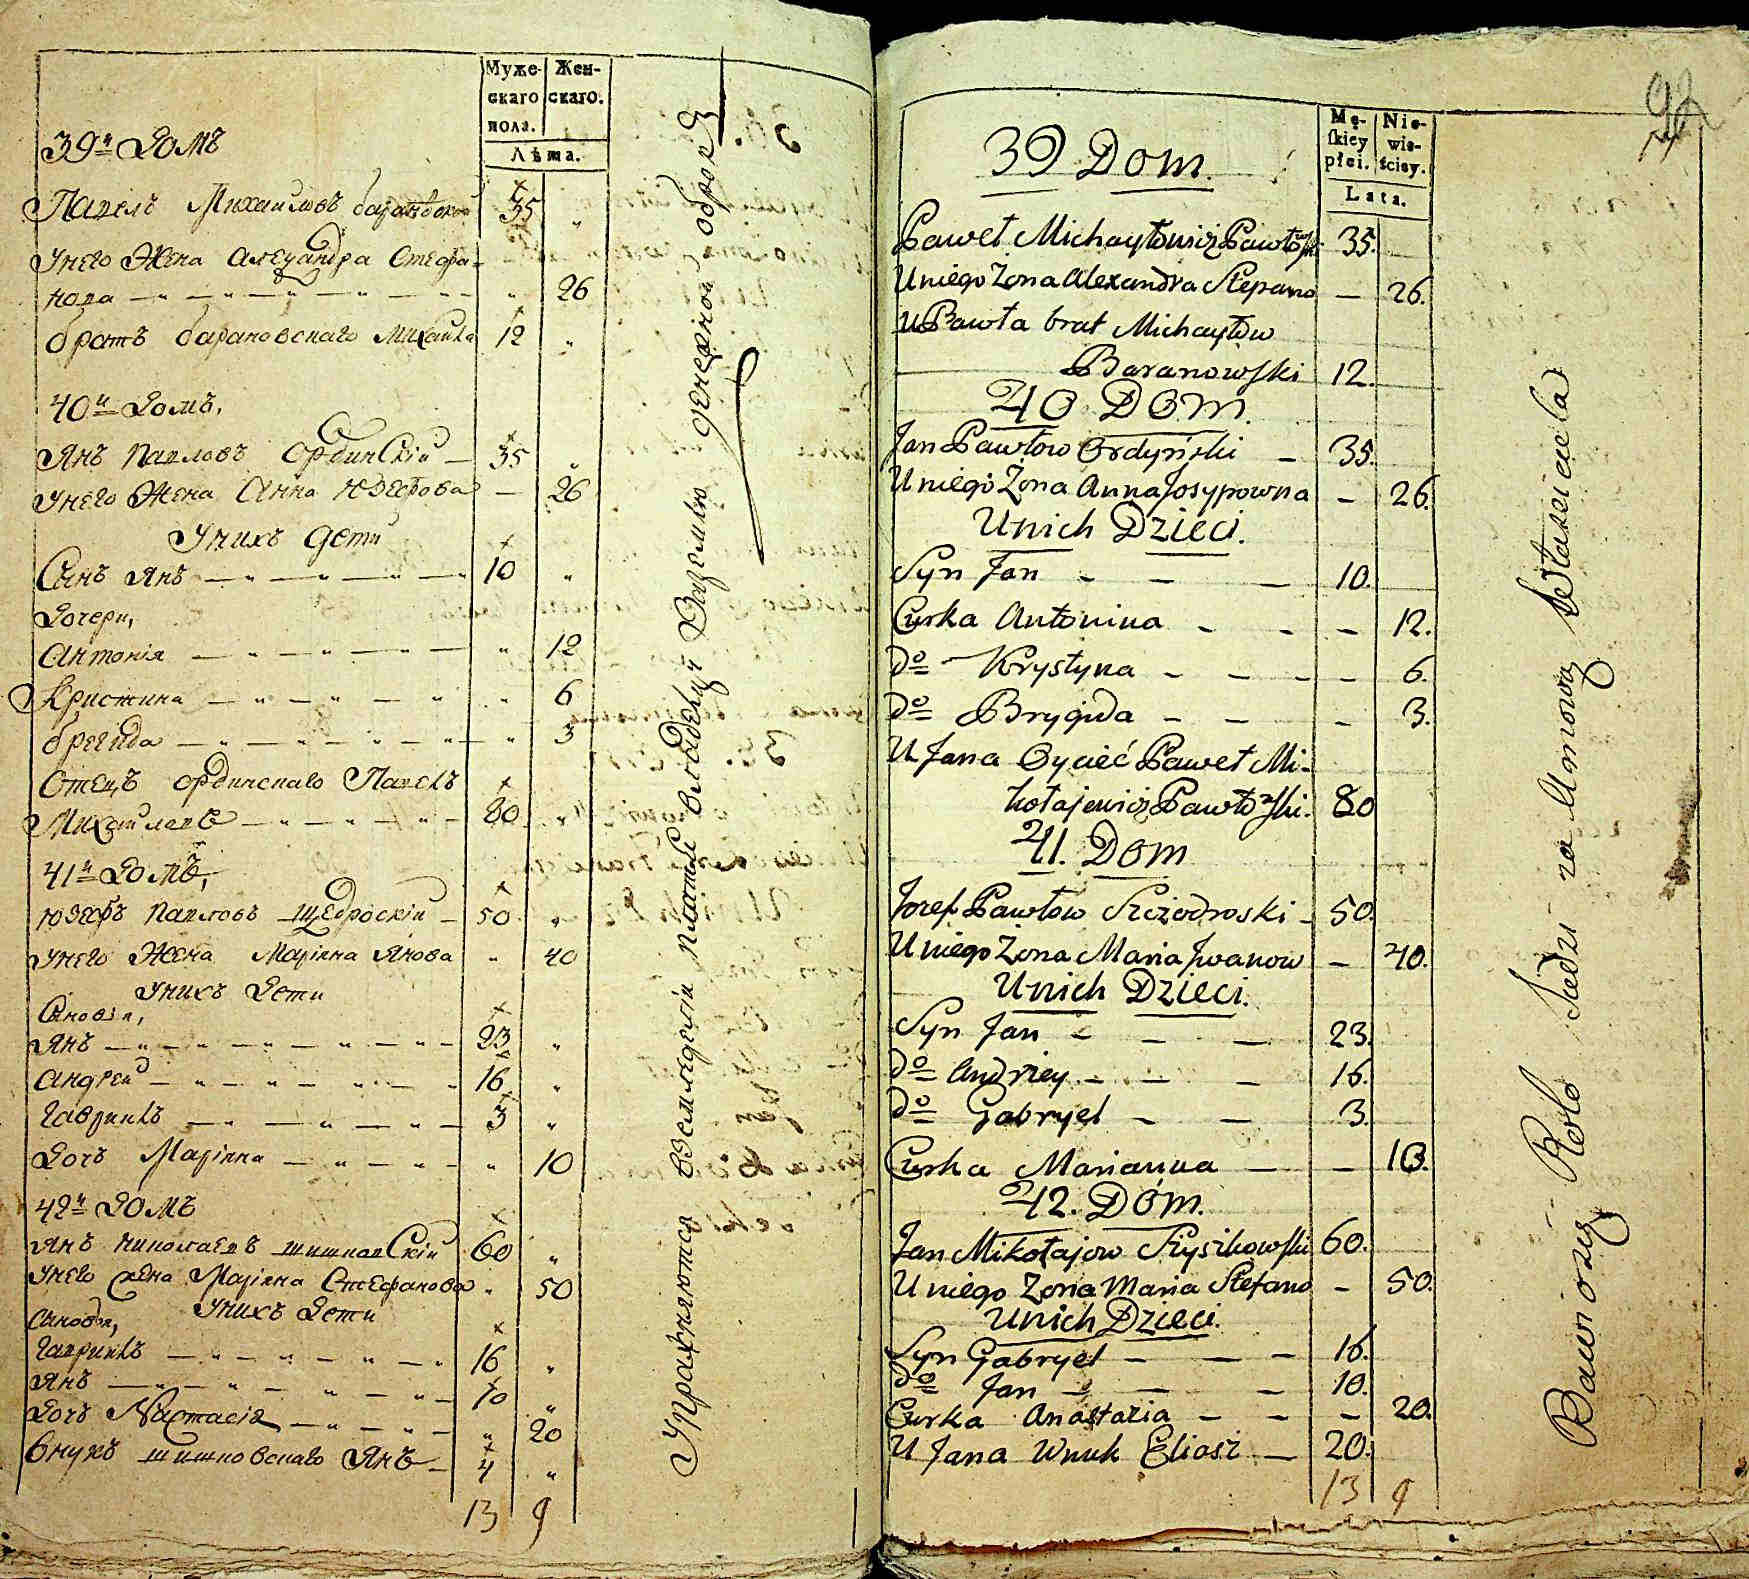 Муже-
скаго
пола.
Жен-
скаго.
Лѣта.
39й Домъ
Павелъ Михаиловъ Барановскій 35 „
У него Жена Александра Стефа-
нова — „ — „ — „ 26
братъ барановскаго Михаила 12 „
40й Домъ,
Янъ Павловъ Ордынскій — 35 „
У него Жена Анна Юзефова — 26
У нихъ дети
Сынъ Янъ — „ — „ — 10 „
Дочери,
Антонія — „ — „ — „ 12
Кристина — „ — „ — „ 6
бригида — „ — „ — „ 3
Отецъ ордынскаго Павелъ
Михайловъ — „ — „ — 80 „
41й Домъ,
Юзефъ Павловъ Щедроскій — 50 „
У него Жена Маріяна Янова „ 40
У нихъ Дети
Сыновья,
Янъ — „ — „ — „ — 23 „
Андрей — „ — „ — „ — 16 „
Гаврилъ — „ — „ — 3 „
Дочь Маріяна — „ — „ — „ 10
42й Домъ
Янъ Николаевъ шишковскій 60 „
У него жена Маріяна Стефанова „ 50
У нихъ Дети
Сыновья,
Гаврилъ — „ — „ — „ 16 „
Янъ — „ — „ — „ — 10 „
Дочь Настасія — „ — „ — „ 20
Внукъ шишковскаго Янъ — 4 „
13 9
Упражняются Вземледеліи платя Владелцу Заземлю денежной оброкъ
92
Mę-
skiey
płci.
Nie-
wie-
ściey.
Lata.
39 Dom.
Paweł Michayłowicz Pawłowski 35.
U niego Żona Alexandra Stepano — 26.
U Pawła brat Michayłów
Baranowski 12.
40 Dom.
Jan Pawłow Ordyński — 35.
U niego Żona Anna Josypowna — 26.
U nich Dzieci.
Syn Jan — — — 10.
Curka Antonina — — — 12.
do Krystyna — — — — 6.
do Brygida — — — 3.
U Jana Oyciéć Paweł Mi-
kołajewicz Pawłowski. 80
41. Dom
Jozef Pawłow Szczodroski — 50.
U niego Żona Maria Iwanow — 40.
U nich Dzieci.
Syn Jan — — — 23.
do Andrzey — — — 16.
do Gabryel — — 3.
Curka Marianna — — 10.
42. Dom.
Jan Mikołajow Szyszkowski 60.
U niego Żona Maria Stefano — 50.
U nich Dzieci.
Syn Gabryel — — — 16.
do Jan — — — 10.
Curka Anastazia — — — 20.
U Jana Wnuk Eliasz — 20.
13 9
Bawią się Rolo Siedzi za Umową Własciciela